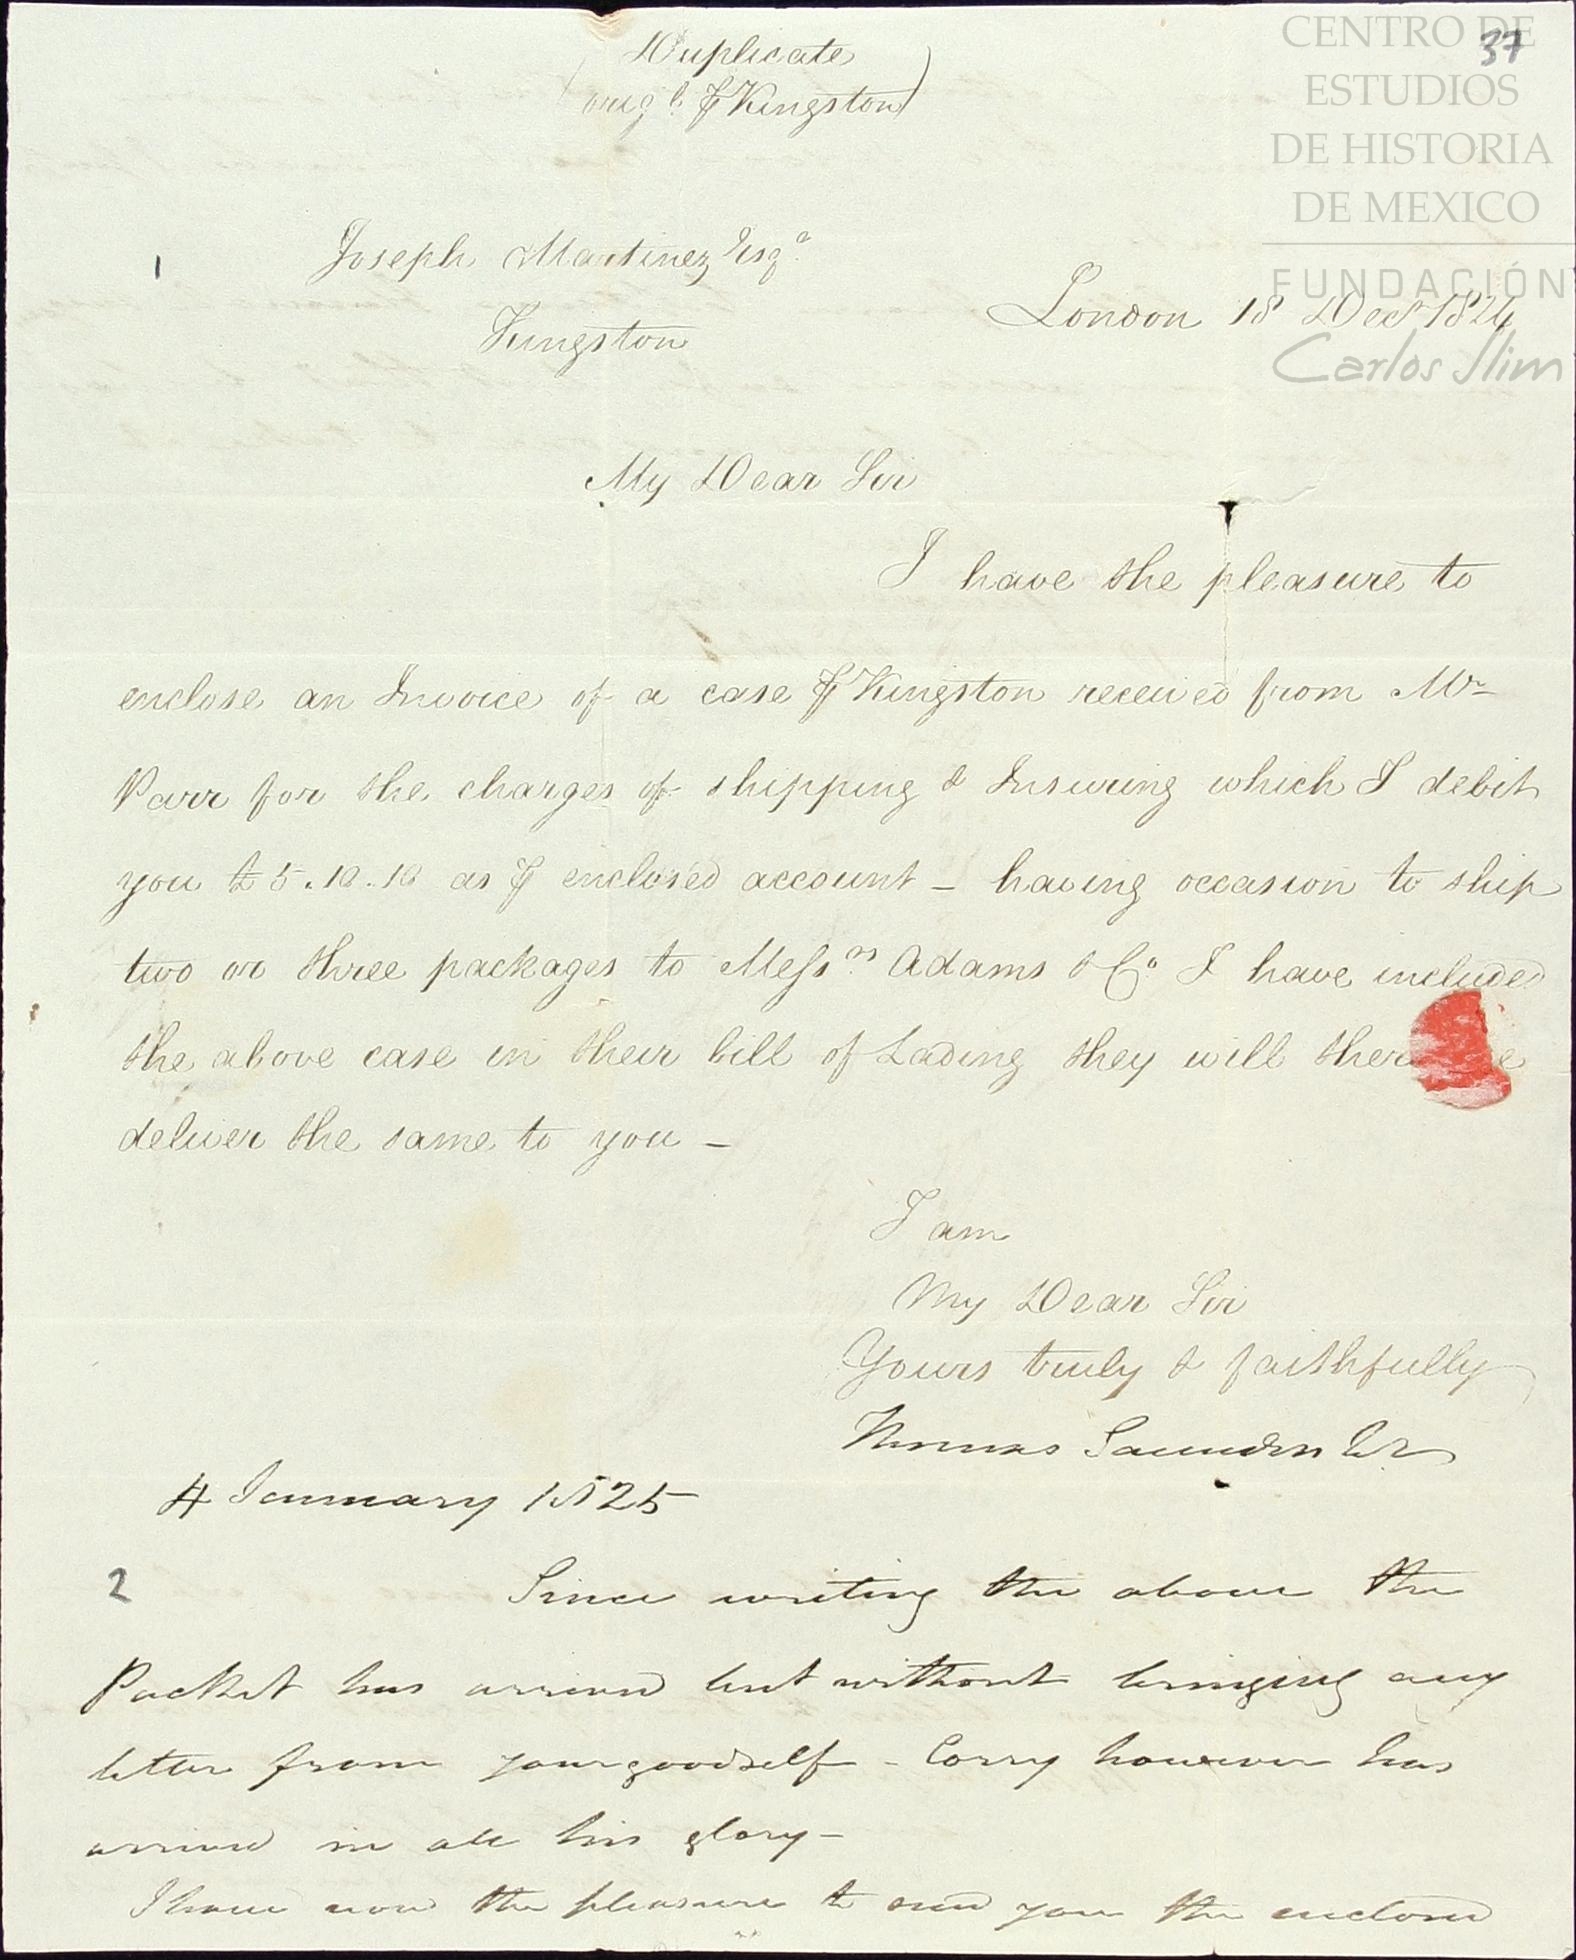 Duplicate
(origl. ⅌ Kingston)
37
CENTRO DE
ESTUDIOS
DE HISTORIA
DE MEXICO
FUNDACIÓN
Carlos Slim
1
Joseph Martinez Esqe.
Kingston
London 18 Decr 1824
My Dear Sir
I have the pleasure to
enclose an Invoice of a case ⅌ Kingston received from Mr
Parr for the charges of shipping & Insuring which I debit
you £5.10.10 as ⅌ enclosed account — having occasion to ship
two or three packages to Messrs. Adams & Co. I have included
the above case in their bill of Lading they will there e
deliver the same to you —
I am
My Dear Sir
Yours truly & faithfully
Thomas Saunders
4 January 1825
2
Since writing the above the
Packet has arrived but without bringing any
letter from your goodself - Corry however has
arrived in all his glory -
I have now the pleasure to send you the enclosed